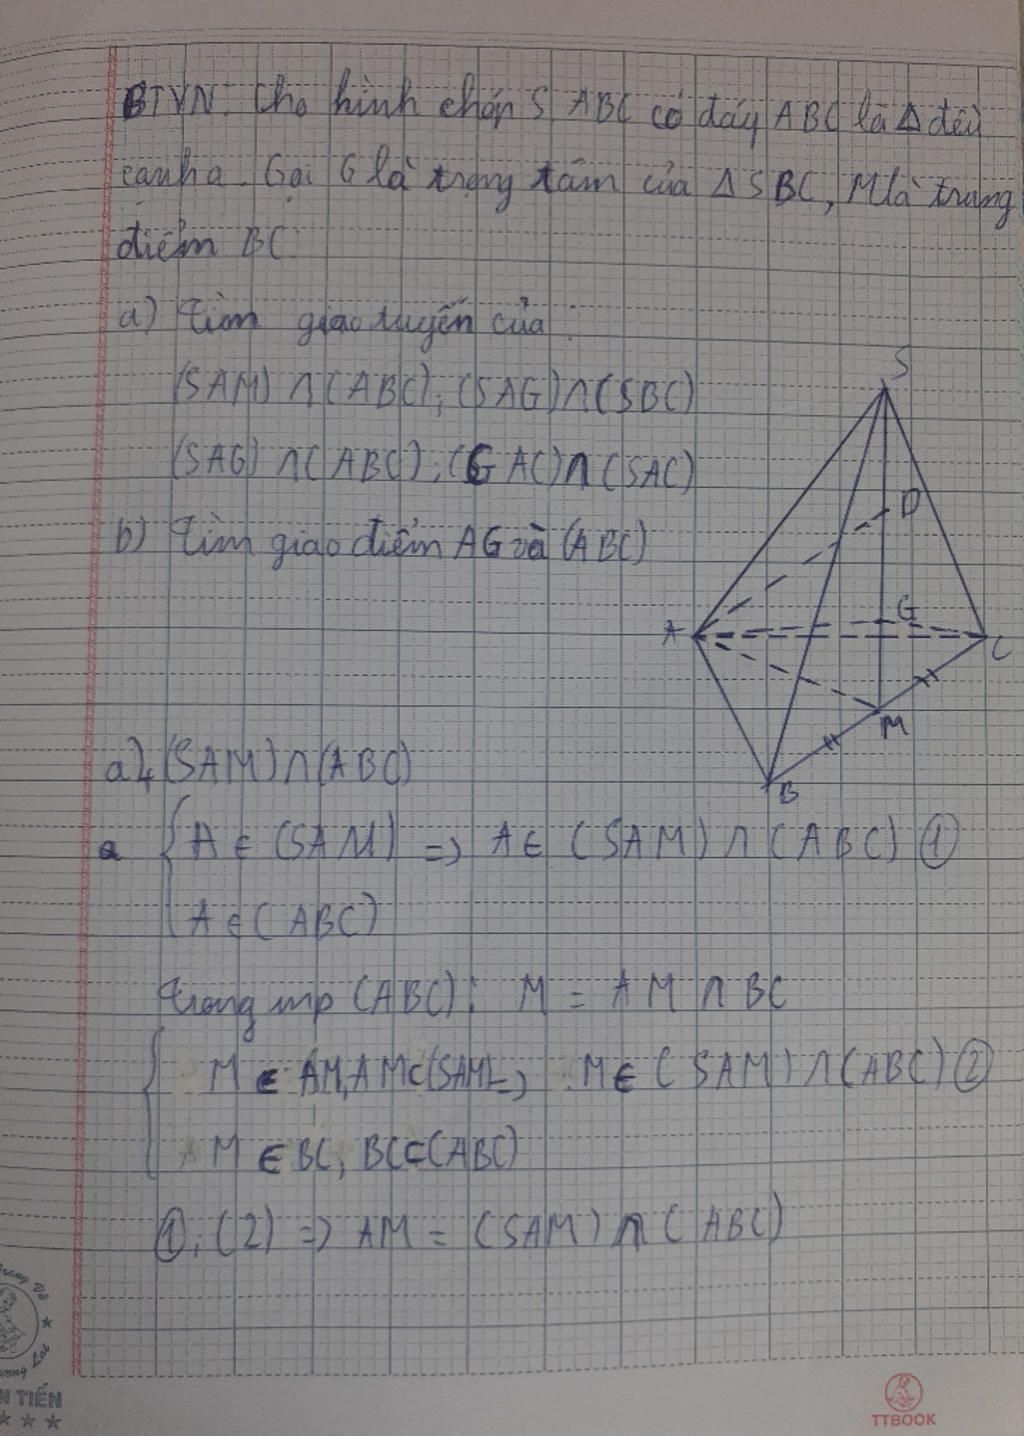 BTVN: Cho hình chóp S ABC có đáy ABC là Δ đều
cạnh a. Gọi G là trọng tâm của ΔSBC, M là trung
điểm BC
a) Tìm giao tuyến của :
(SAM) ∩ (ABC); (SAG) ∩ (SBC)
(SAG) ∩ (ABC); (GAC) ∩ (SAC)
b) Tìm giao điểm AG và (ABC)
S
D
G
A
C
M
B
a) (SAM) ∩ (ABC)
{ A ∈ (SAM) => A ∈ (SAM) ∩ (ABC) ①
A ∈ (ABC)
Trong mp (ABC): M = AM ∩ BC
{ M ∈ AM, AM ⊂ (SAM) => M ∈ (SAM) ∩ (ABC) ②
M ∈ BC, BC ⊂ (ABC)
①, (2) => AM = (SAM) ∩ (ABC)
N TIẾN
TTBOOK